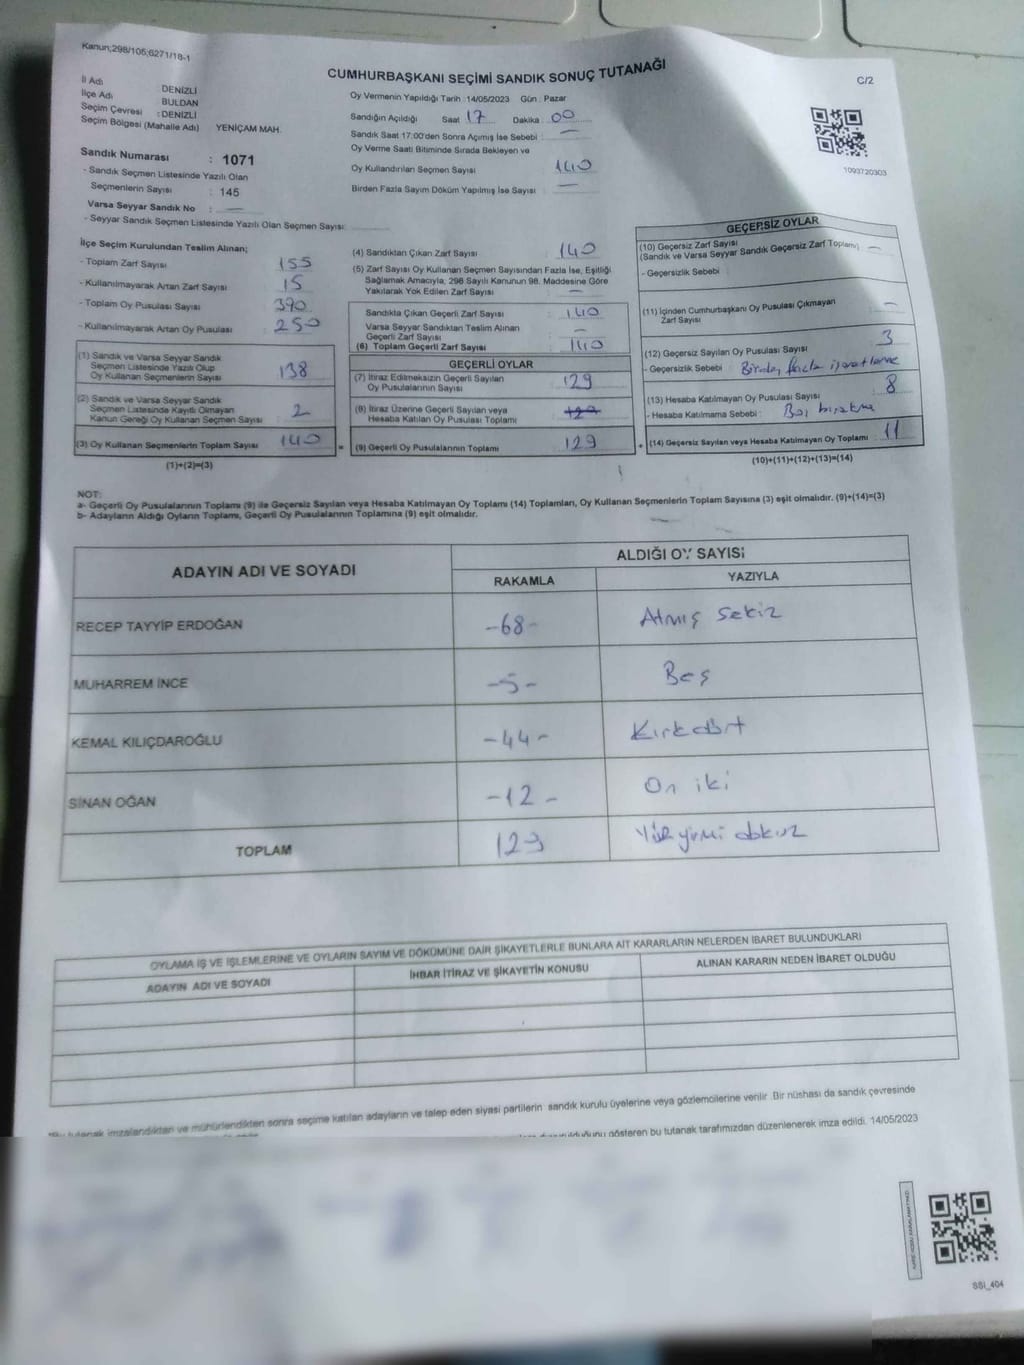 Kanun;298/105;6271/18-1
CUMHURBAŞKANI SEÇİMİ SANDIK SONUÇ TUTANAĞI
C/2
İl Adı : DENİZLİ
İlçe Adı BULDAN
Seçim Çevresi : DENİZLİ
Seçim Bölgesi (Mahalle Adı) YENİÇAM MAH.
Sandık Numarası : 1071
- Sandık Seçmen Listesinde Yazılı Olan
Seçmenlerin Sayısı : 145
Varsa Seyyar Sandık No : —
- Seyyar Sandık Seçmen Listesinde Yazılı Olan Seçmen Sayısı:
Oy Vermenin Yapıldığı Tarih :14/05/2023 Gün : Pazar
Sandığın Açıldığı Saat 17 Dakika : 00
Sandık Saat 17:00'den Sonra Açımış İse Sebebi : —
Oy Verme Saati Bitiminde Sırada Bekleyen ve
Oy Kullandırılan Seçmen Sayısı 140
Birden Fazla Sayım Döküm Yapılmış İse Sayısı : —
1093720303
İlçe Seçim Kurulundan Teslim Alınan;
- Toplam Zarf Sayısı 155
- Kullanılmayarak Artan Zarf Sayısı : 15
- Toplam Oy Pusulası Sayısı : 390
- Kullanılmayarak Artan Oy Pusulası : 250
(1) Sandık ve Varsa Seyyar Sandık
Seçmen Listesinde Yazılı Olup
Oy Kullanan Seçmenlerin Sayısı : 138
(2) Sandık ve Varsa Seyyar Sandık
Seçmen Listesinde Kayıtlı Olmayan
Kanun Gereği Oy Kullanan Seçmen Sayısı : 2
(3) Oy Kullanan Seçmenlerin Toplam Sayısı : 140
(1)+(2)=(3)
(4) Sandıktan Çıkan Zarf Sayısı : 140
(5) Zarf Sayısı Oy Kullanan Seçmen Sayısından Fazla İse, Eşitliği
Sağlamak Amacıyla, 298 Sayılı Kanunun 98. Maddesine Göre
Yakılarak Yok Edilen Zarf Sayısı : —
Sandıkla Çıkan Geçerli Zarf Sayısı : 140
Varsa Seyyar Sandıktan Teslim Alınan
Geçerli Zarf Sayısı : —
(6) Toplam Geçerli Zarf Sayısı : 140
GEÇERLİ OYLAR
(7) İtiraz Edilmeksizin Geçerli Sayılan
Oy Pusulalarının Sayısı : 129
(8) İtiraz Üzerine Geçerli Sayılan veya
Hesaba Katılan Oy Pusulası Toplamı : 129
= (9) Geçerli Oy Pusulalarının Toplamı : 129
GEÇERSİZ OYLAR
(10) Geçersiz Zarf Sayısı
(Sandık ve Varsa Seyyar Sandık Geçersiz Zarf Toplamı) : —
- Geçersizlik Sebebi :
(11) İçinden Cumhurbaşkanı Oy Pusulası Çıkmayan
Zarf Sayısı : —
(12) Geçersiz Sayılan Oy Pusulası Sayısı : 3
- Geçersizlik Sebebi : Birden fazla işaretleme
(13) Hesaba Katılmayan Oy Pusulası Sayısı : 8
- Hesaba Katılmama Sebebi : Boş bırakma
+ (14) Geçersiz Sayılan veya Hesaba Katılmayan Oy Toplamı : 11
(10)+(11)+(12)+(13)=(14)
NOT:
a- Geçerli Oy Pusulalarının Toplamı (9) ile Geçersiz Sayılan veya Hesaba Katılmayan Oy Toplamı (14) Toplamları, Oy Kullanan Seçmenlerin Toplam Sayısına (3) eşit olmalıdır. (9)+(14)=(3)
b- Adayların Aldığı Oyların Toplamı, Geçerli Oy Pusulalarının Toplamına (9) eşit olmalıdır.
ADAYIN ADI VE SOYADI
ALDIĞI OY SAYISI
RAKAMLA YAZIYLA
RECEP TAYYİP ERDOĞAN -68- Atmış sekiz
MUHARREM İNCE -5- Beş
KEMAL KILIÇDAROĞLU -44- Kırkdört
SİNAN OĞAN -12- On iki
TOPLAM 129 Yüz yirmi dokuz
OYLAMA İŞ VE İŞLEMLERİNE VE OYLARIN SAYIM VE DÖKÜMÜNE DAİR ŞİKAYETLERLE BUNLARA AİT KARARLARIN NELERDEN İBARET BULUNDUKLARI
ADAYIN ADI VE SOYADI İHBAR İTİRAZ VE ŞİKAYETİN KONUSU ALINAN KARARIN NEDEN İBARET OLDUĞU
*Bu tutanak imzalandıktan ve mühürlendikten sonra seçime katılan adayların ve talep eden siyasi partilerin sandık kurulu üyelerine veya gözlemcilerine verilir. Bir nüshası da sandık çevresinde
duyurulduğunu gösteren bu tutanak tarafımızdan düzenlenerek imza edildi. 14/05/2023
SSI_404